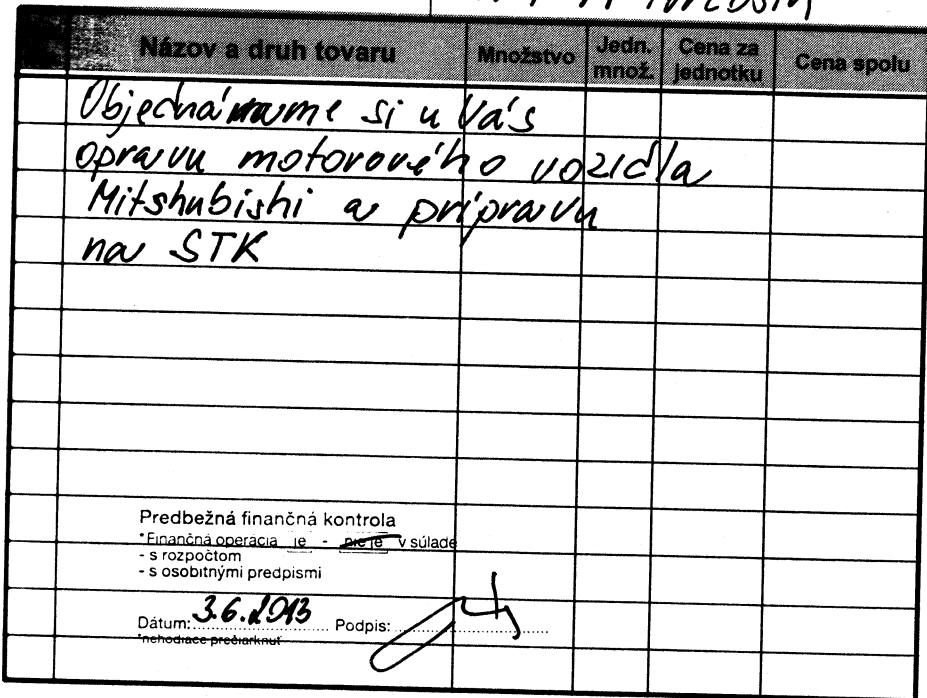 Názov a druh tovaru Množstvo Jedn. množ. Cena za jednotku Cena spolu
Objednávame si u Vás
opravu motorového vozidla
Mitshubishi a prípravu
na STK
Predbežná finančná kontrola
*Finančná operácia je - nie je v súlade
- s rozpočtom
- s osobitnými predpismi
Dátum: 3.6.2013 Podpis:
*nehodiace prečiarknuť